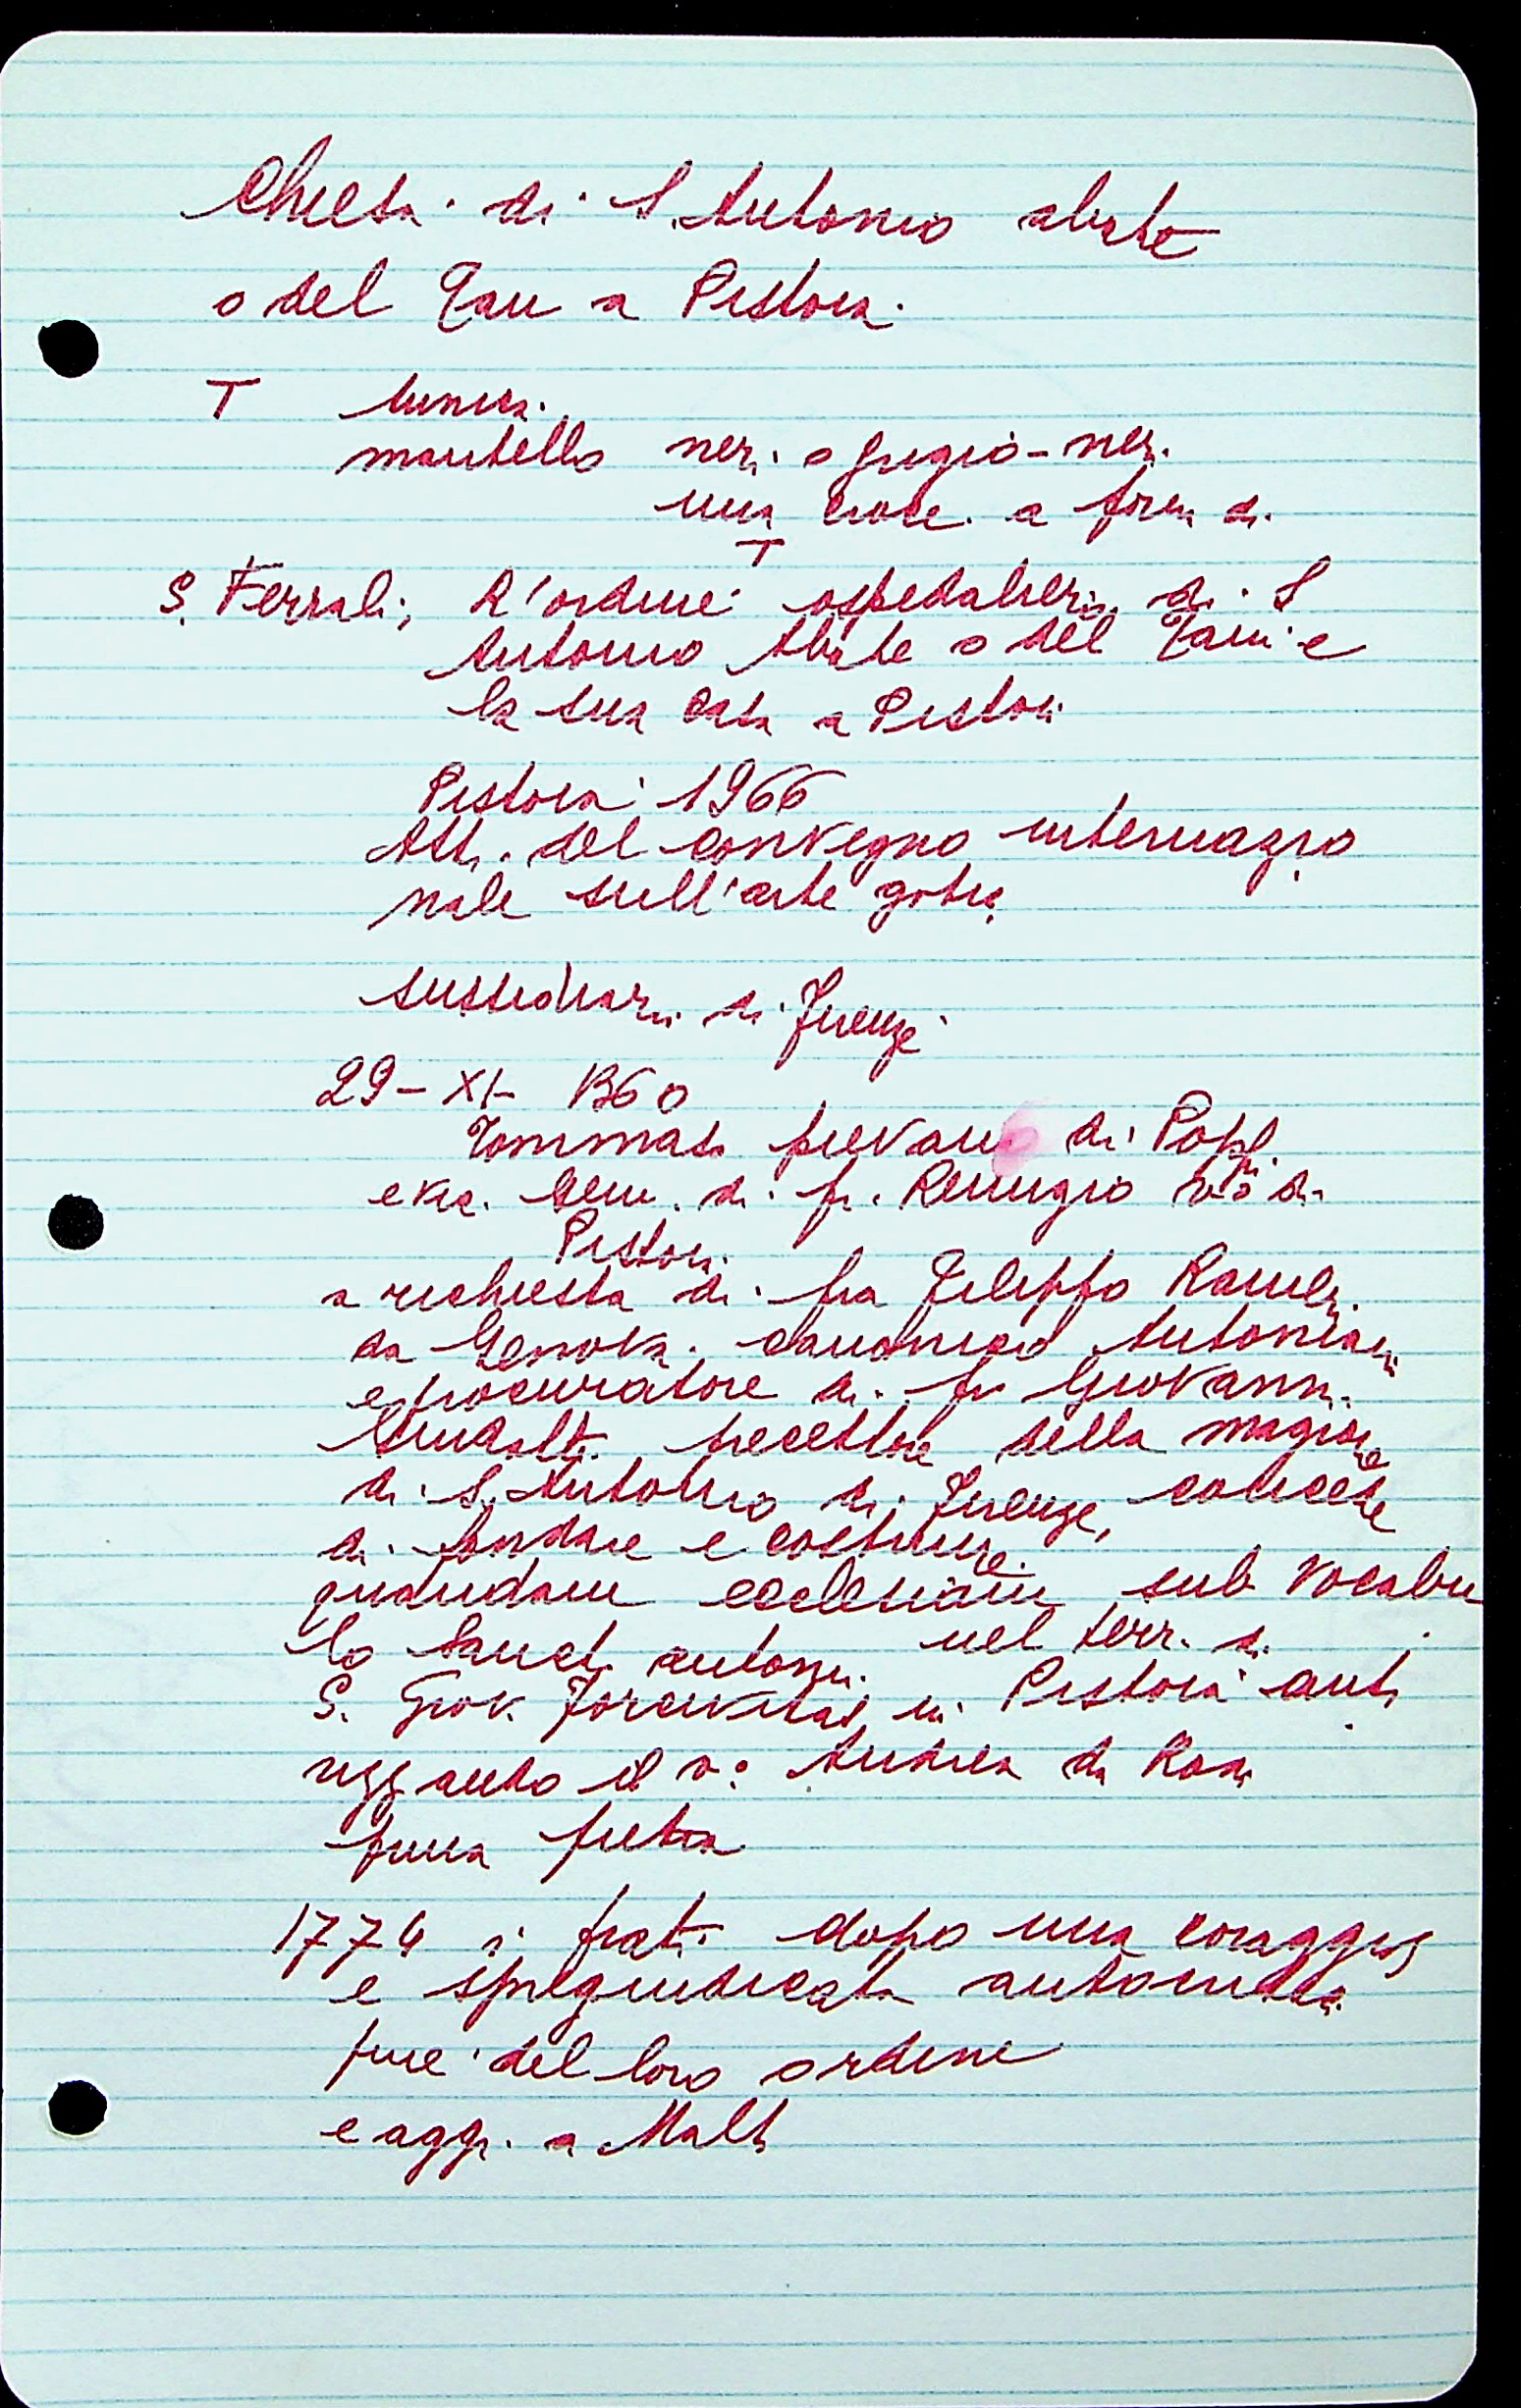 Chiesa di S. Antonio abate
o del Tau a Pistoia.
T tunica
mantello neri o grigio-neri
una croce a forma di
T
S. Ferrali, L'ordine ospedaliero di S
Antonio Abate o del Tau e
la sua casa a Pistoia
Pistoia 1966
Atti del convegno internazio
nale sull'arte gotica
sussidiaria di Firenze
29-XI-1360
Tommaso pievano di Popi
e vic. gen. di fr. Remigio vo di
Pistoia
a richiesta di fra Filippo
da Genova canonico Antonian
e procuratore di fr Giovanni
precettore della magione
di S. Antonio di Firenze, concede
di fondare e costruire
quandam ecclesiam sub vocabu
lo Sancti antonii nel terr. di
S. Giov. Forcivitas in Pistoia ant.
uff auto il v: Andrea da
prima pietra
1774 i frati dopo una coraggios
e spregiudicata autocritica
fine del loro ordine
e aggr. a Malta